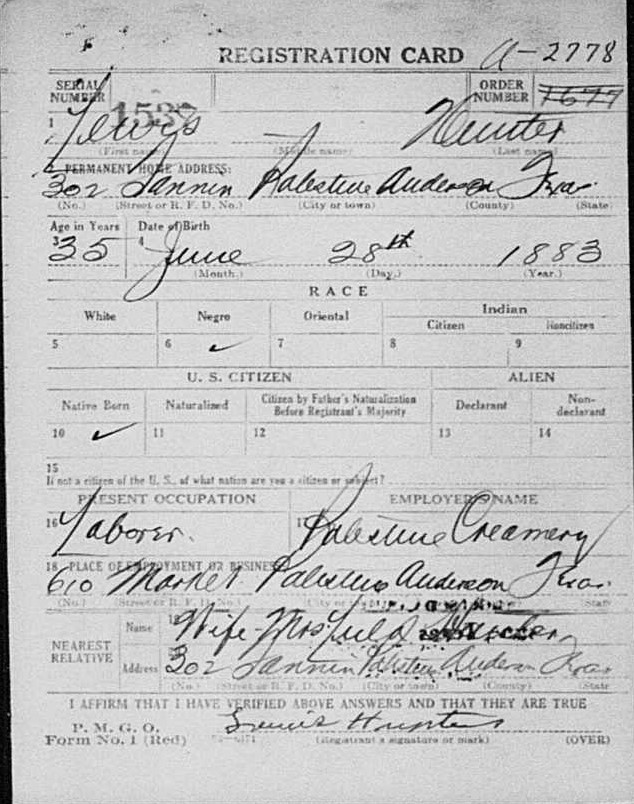 REGISTRATION CARD A-2778
SERIAL NUMBER 1537 ORDER NUMBER 1677
1 Lewis Hunter
(First name) (Middle name) (Last name)
2 PERMANENT HOME ADDRESS:
302 Fannin Palestine Anderson Texas
(No.) (Street or R. F. D. No.) (City or town) (County) (State)
Age in Years Date of Birth
3 35 4 June 28th 1883
(Month.) (Day.) (Year.)
RACE
White Negro Oriental Indian
Citizen Noncitizen
5 6 ✓ 7 8 9
U. S. CITIZEN ALIEN
Native Born Naturalized Citizen by Father's Naturalization Before Registrant's Majority Declarant Non-declarant
10 ✓ 11 12 13 14
15
If not a citizen of the U. S., of what nation are you a citizen or subject?
PRESENT OCCUPATION EMPLOYER'S NAME
16 Laborer. 17 Palestine Creamery
18 PLACE OF EMPLOYMENT OR BUSINESS
610 Market Palestine Anderson Texas
(No.) (Street or R. F. D. No.) (City or town) State
NEAREST RELATIVE Name 19 Wife-Mrs Hunter
Address 302 Fannin Palestine Anderson Texas
(No.) (Street or R. F. D. No.) (City or town) (County) (State
I AFFIRM THAT I HAVE VERIFIED ABOVE ANSWERS AND THAT THEY ARE TRUE
P. M. G. O.
Form No. 1 (Red) (Registrant's signature or mark) (OVER)